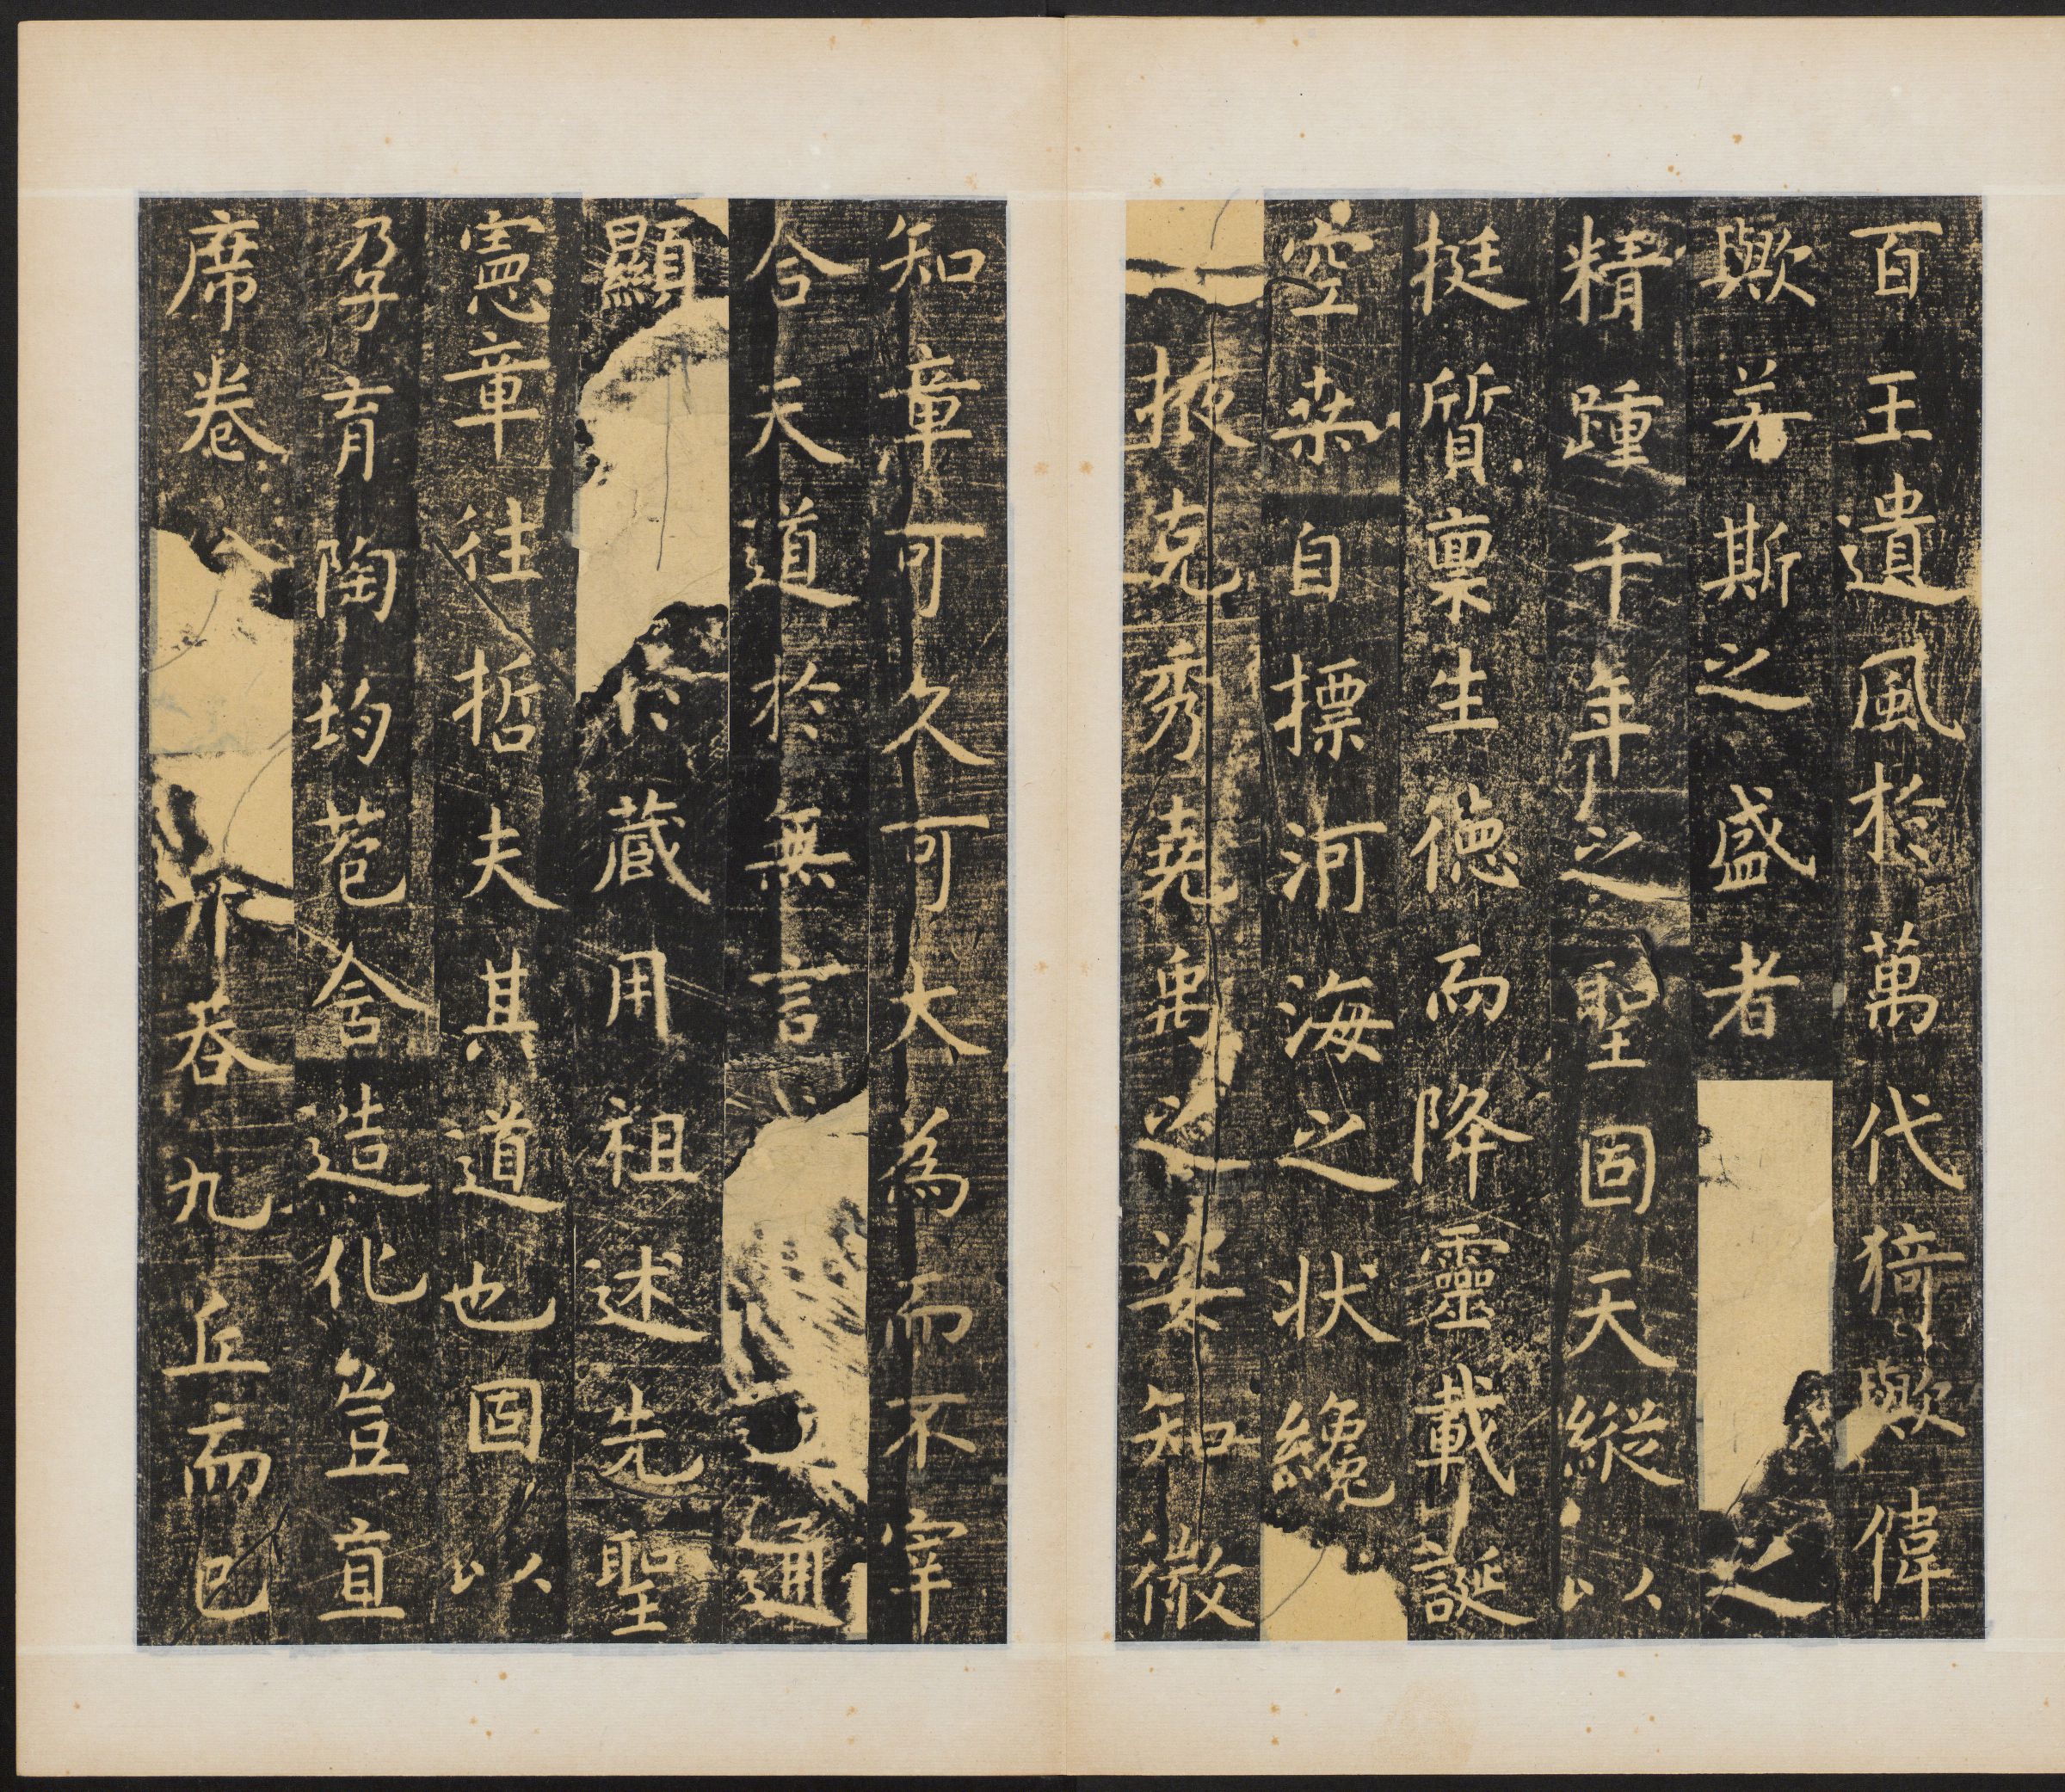 百王遺風於萬代猗歟偉
歟若斯之盛者之
精踵千年之聖固天縱以
挺質稟生德而降靈載誕
空桒自標河海之狀纔
掖克秀堯禹之姿知微
知章可久可大為而不宰
合天道於無言通
顯於藏用祖述先聖
憲章往哲夫其道也固以
孕育陶均苞含造化豈直
席卷八并吞九丘而已